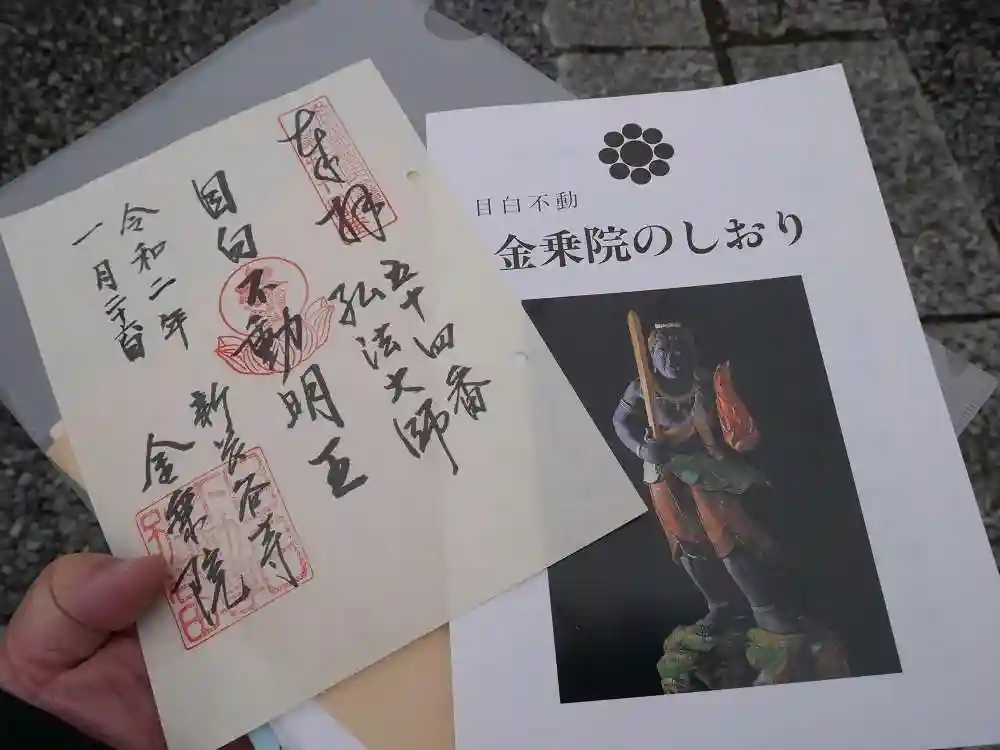 奉拝
五十四番
弘法大師
目白不動明王
令和二年
一月二十六日
新長谷寺
金乗院
目白不動
金乗院のしおり